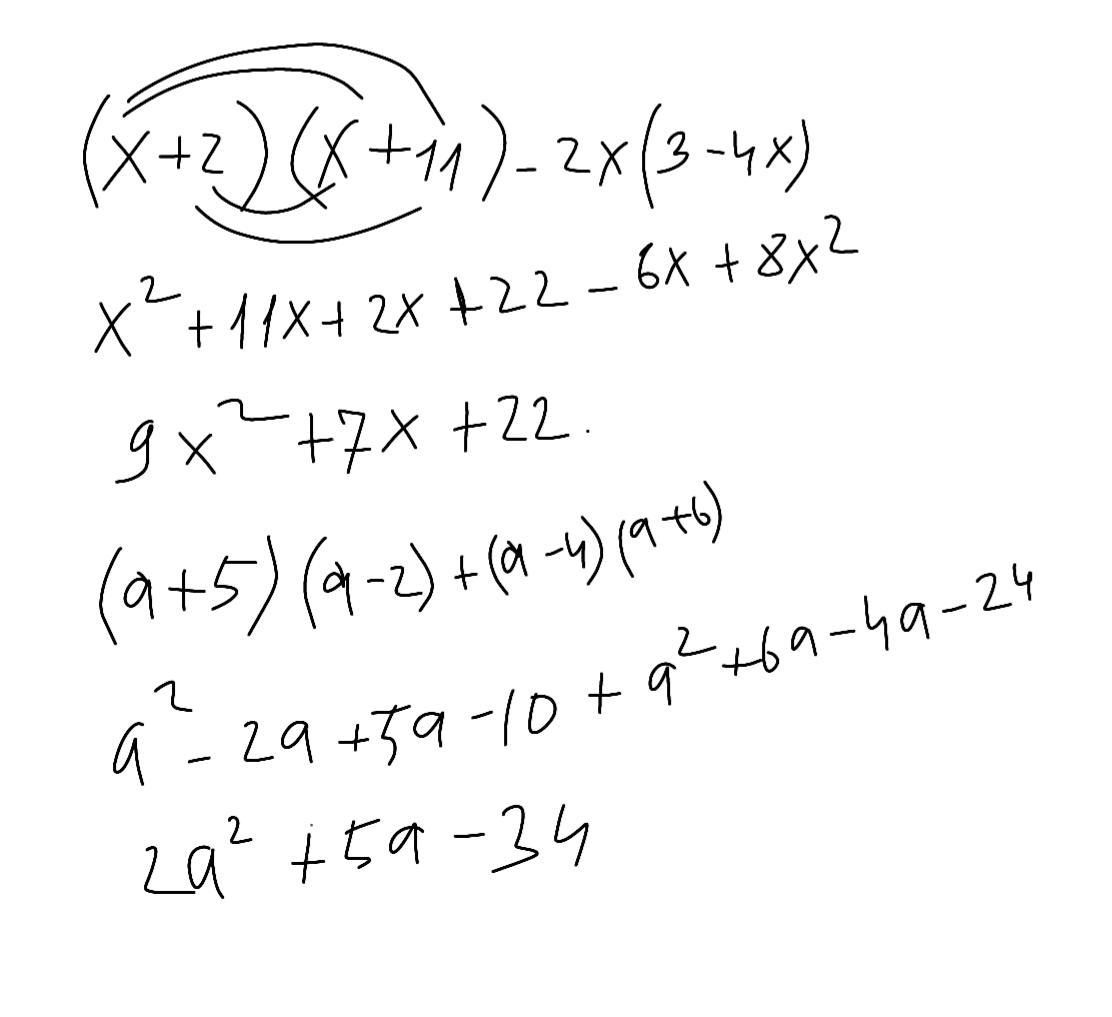 (x+2)(x+11)-2x(3-4x)
x²+11x+2x+22-6x+8x²
9x²+7x+22.
(a+5)(a-2)+(a-4)(a+6)
a²-2a+5a-10+a²+6a-4a-24
2a²+5a-34